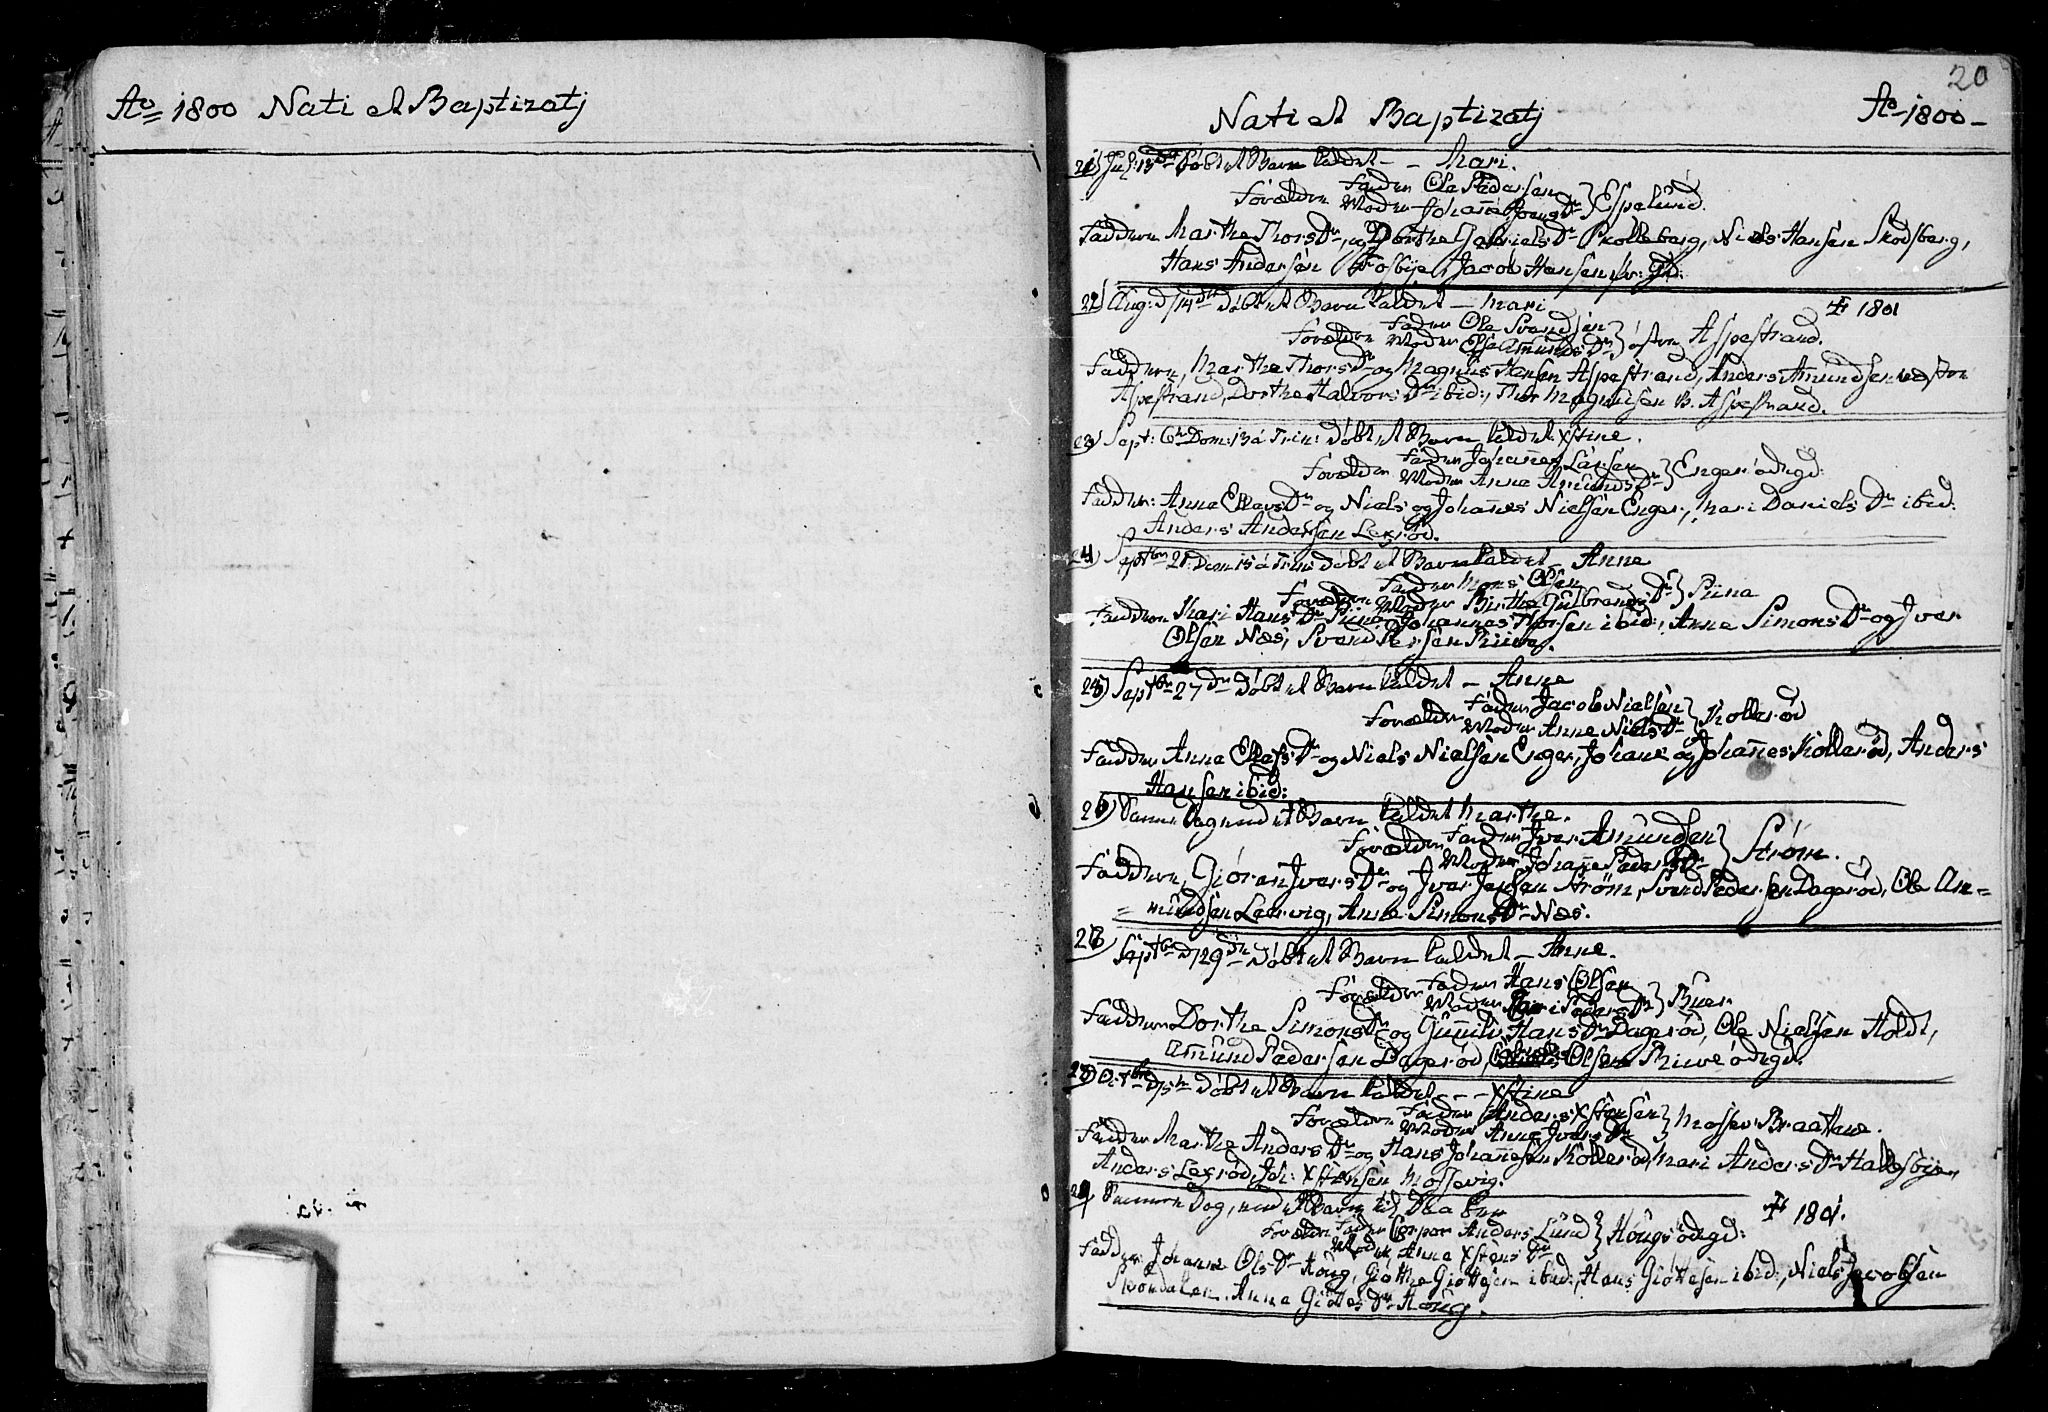 Ao 1800 Nati et Baptizatj
20
Nati et Baptizatj Ao 1800
21) Jul: 13de døbt et Barn kaldet - - Mari.
Forældre Fader Ole Pedersen
Moder Johanne Jong Dr } Espelund.
Faddere Marthe Thors Dr og Dorthe Gabriels Dr Skolleborg, Niels Hansen Skodsberg,
Hans Andersen Fosbye, Jacob Hansen
22) Aug: d/14de døbt et Barn kaldet - Mari ‡ 1801
Forældre Fader Ole Svendsen
Moder Else Amunds Dr } østen Aspestrand.
Faddere, Marthe Thors Dr og Magnus Hansen Aspestrand, Anders Amundsen østen
Aspestrand, Dorthe Halvors Dr ibid:, Thor Magnusen B. Aspestrand.
23) Sept: 6te Dom: 13 á Trin: døbt et Barn kaldet Xstine.
Forældre Fader Johannes Larsen
Moder Anne Amunds Dr } Enger ødegd:
Faddere: Anne Ellevs Dr og Niels og Johannes Nielsen Enger, Mari Daniels Dr ibid:
Anders Andersen Lexrød.
24) Septbr 21 Dom 15 á Trin: døbt et Barn kaldet - Anne
Forældre Fader Mons Olsen
Moder Birthe Gulbrands Dr } Riina
Faddere Kari Hans Dr Johannes Thorsen ibid:, Anne Simons Dr og Iver
Olsen Næs, Svend
25) Septbr 27de døbt et Barn kaldet - Anne
Forældre Fader Jacob Nielsen
Moder Anne Niels Dr } Kollerød
Faddere Anne Ellefs Dr og Niels Nielsen Enger, Johane og Johannes Kollerød, Anders
Hansen ibid:
26) Samme Dag et Barn kaldet Marthe.
Forældre Fader Iver Amundsen
Moder Johanne Peders Dr } Strøm.
Faddere, Giøran Ivers Dr og Iver Jensen Strøm, Svend Pedersen Dagerød, Ole Am=
=mundsen Leervig, Anne Simons Dr Næs.
27) Septbr d/29de døbt et Barn kaldet - Anne.
Forældre Fader Hans Olsen
Moder Peders Dr } Buer
Faddere Dorthe Simons Dr og Gunnild Hans Dr Dagerød, Ole Nielsen Holdt,
Amund Pedersen Dagerød, Olsen ødegd.
28) Octbr d/5te døbt et Barn kaldet - - - Xstine
Forældre Fader Anders Xstensen
Moder Anne Ivers Dr } Mosser Braathene.
Faddere Marthe Anders Dr og Hans Johannesen Kollerød, Mari Anders Dr
Anders Lexrød, Joh: Xstensen Mossevig.
29) Samme Dag, et Barn til Daaben ‡ 1801.
Forældre Fader Corpor Anders Lund
Moder Anne Xstens Dr } Houg ødegd:
Faddere Johanne Ols Dr Houg, Giøthe Giøttesen ibid:, Hans Giøttesen ibid:, Niels Jacobsen
Skovdalen. Anne Giøttes Dr Houg.